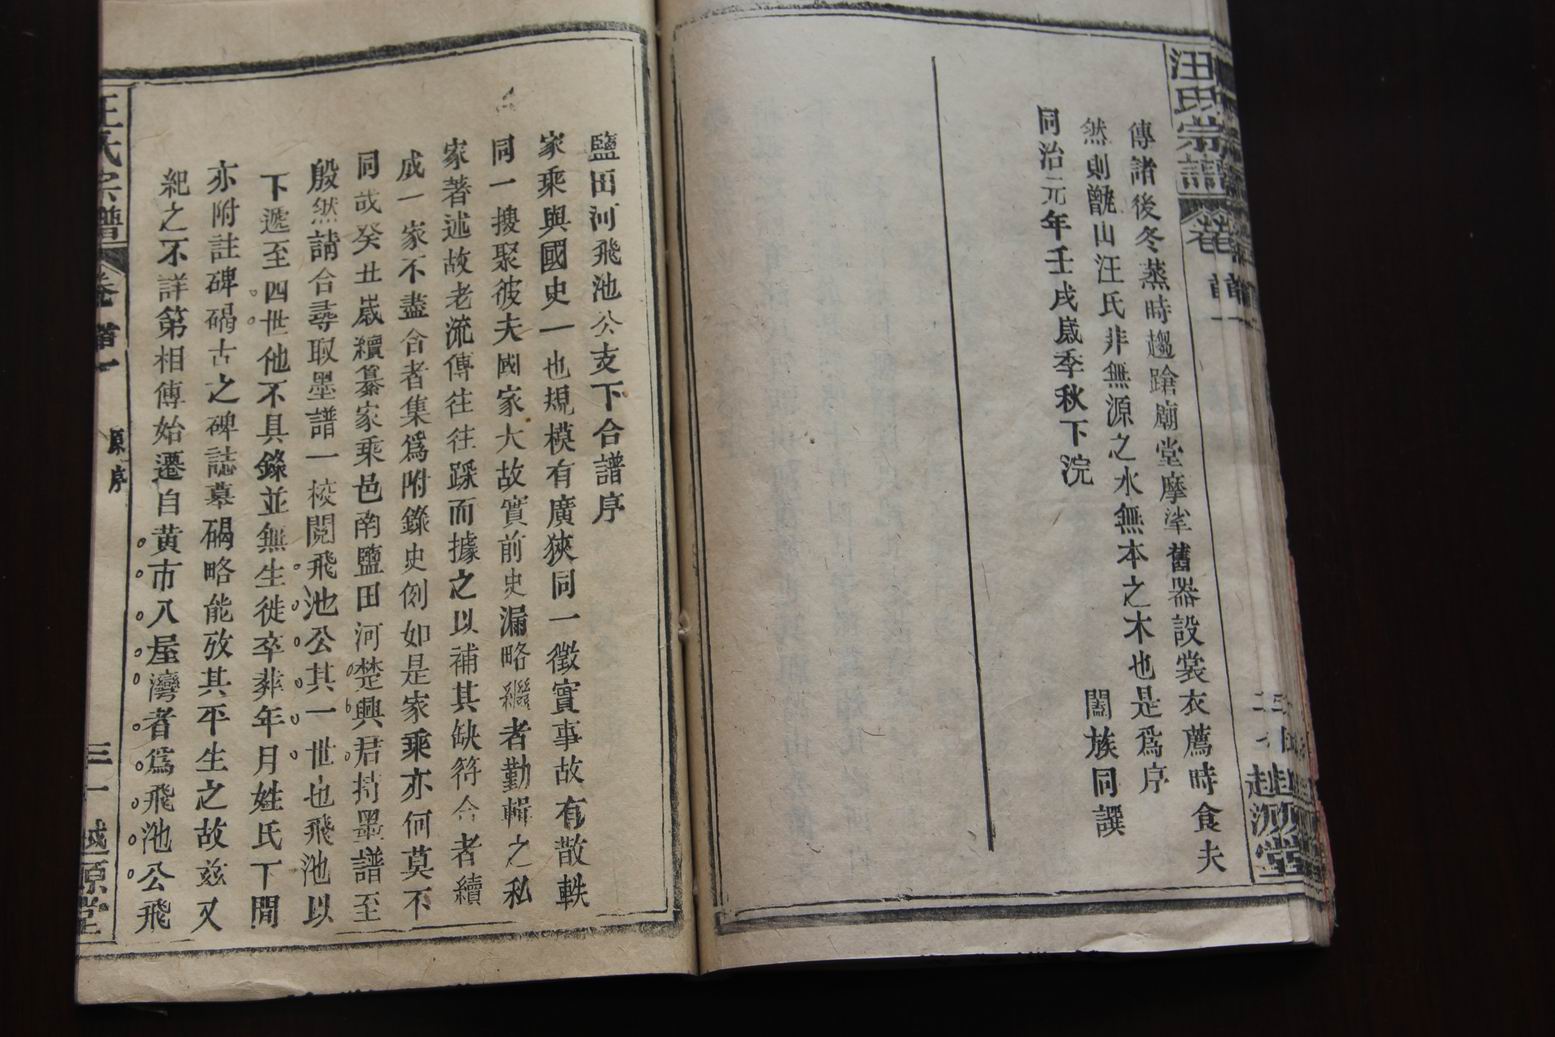 汪氏宗譜
卷首一
傳諸後冬蒸時趨蹌廟堂摩挲舊器設裳衣薦時食夫
然則㲲山汪氏非無源之水無本之木也是爲序
闔族同譔
同治元年壬戌嵗季秋下浣
鹽田河飛池公支下合譜序
家乘與國史一也規模有廣狹同一徵實事故有散軼
同一搜聚彼夫國家大故實前史漏略繼者勤輯之私
家著述故老流傳往往蹂而據之以補其缺符合者續
成一家不盡合者集爲附錄史例如是家乘亦何莫不
同哉癸丑嵗續纂家乘邑南鹽田河楚興君持墨譜至
殷然請合尋取墨譜一校閱飛池公其一世也飛池以
下遞至四世他不具錄並無生徙卒葬年月姓氏丁間
亦附註碑碣古之碑誌墓碣略能攷其平生之故兹又
紀之不詳第相傳始遷自黄市八屋灣者爲飛池公飛
汪氏宗譜
卷首一
原序
三一
越源堂